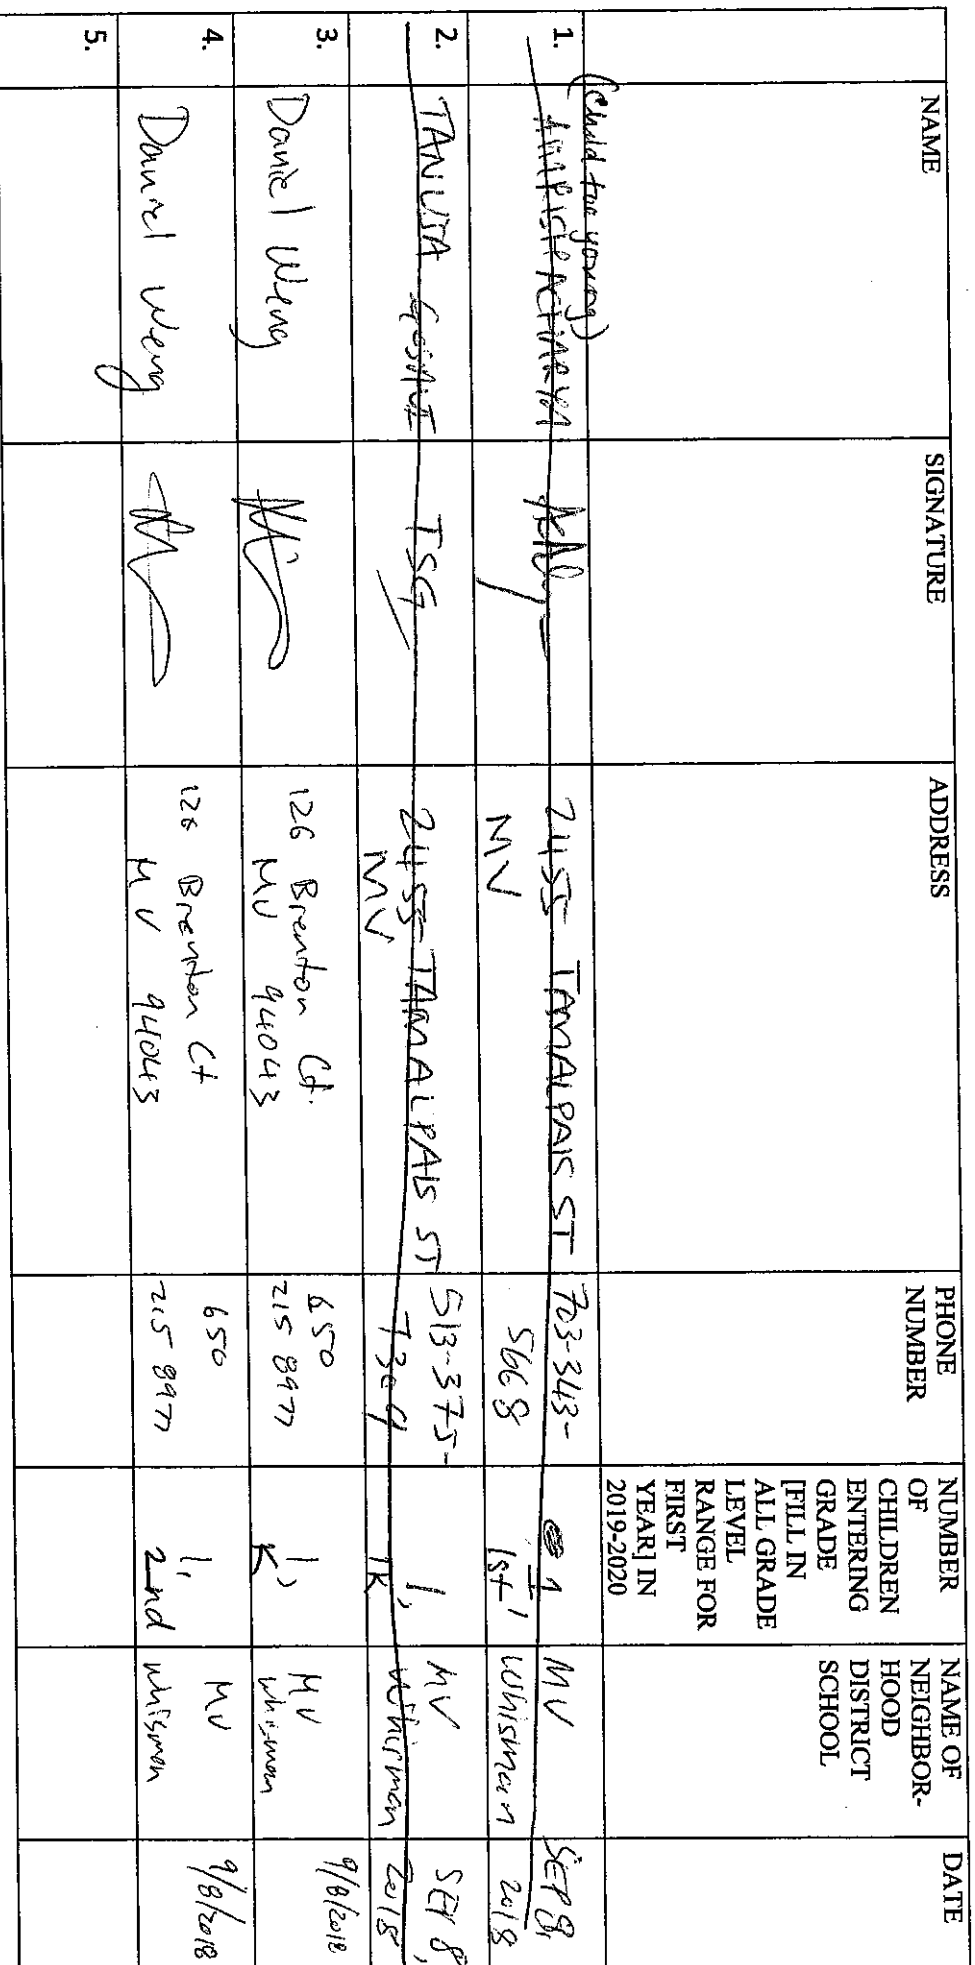 NAME
SIGNATURE
ADDRESS
PHONE
NUMBER
NUMBER
OF
CHILDREN
ENTERING
GRADE
[FILL IN
ALL GRADE
LEVEL
RANGE FOR
FIRST
YEAR] IN
2019-2020
NAME OF
NEIGHBOR-
HOOD
DISTRICT
SCHOOL
DATE
1.
(Child too young)
2455 TAMALPAIS ST
MV
703-343-
5668
1
1st
MV
Whisman
SEP 8,
2018
2.
TANUJA
TSG
2455 TAMALPAIS ST
MV
513-375-
7309
1,
TK
MV
Whisman
SEP 8,
2018
3.
Daniel Weng
126 Brenton Ct.
MV 94043
650
215 8977
1,
K
MV
Whisman
9/8/2018
4.
Daniel Weng
126 Brenton Ct
MV 94043
650
215 8977
1,
2nd
MV
Whisman
9/8/2018
5.